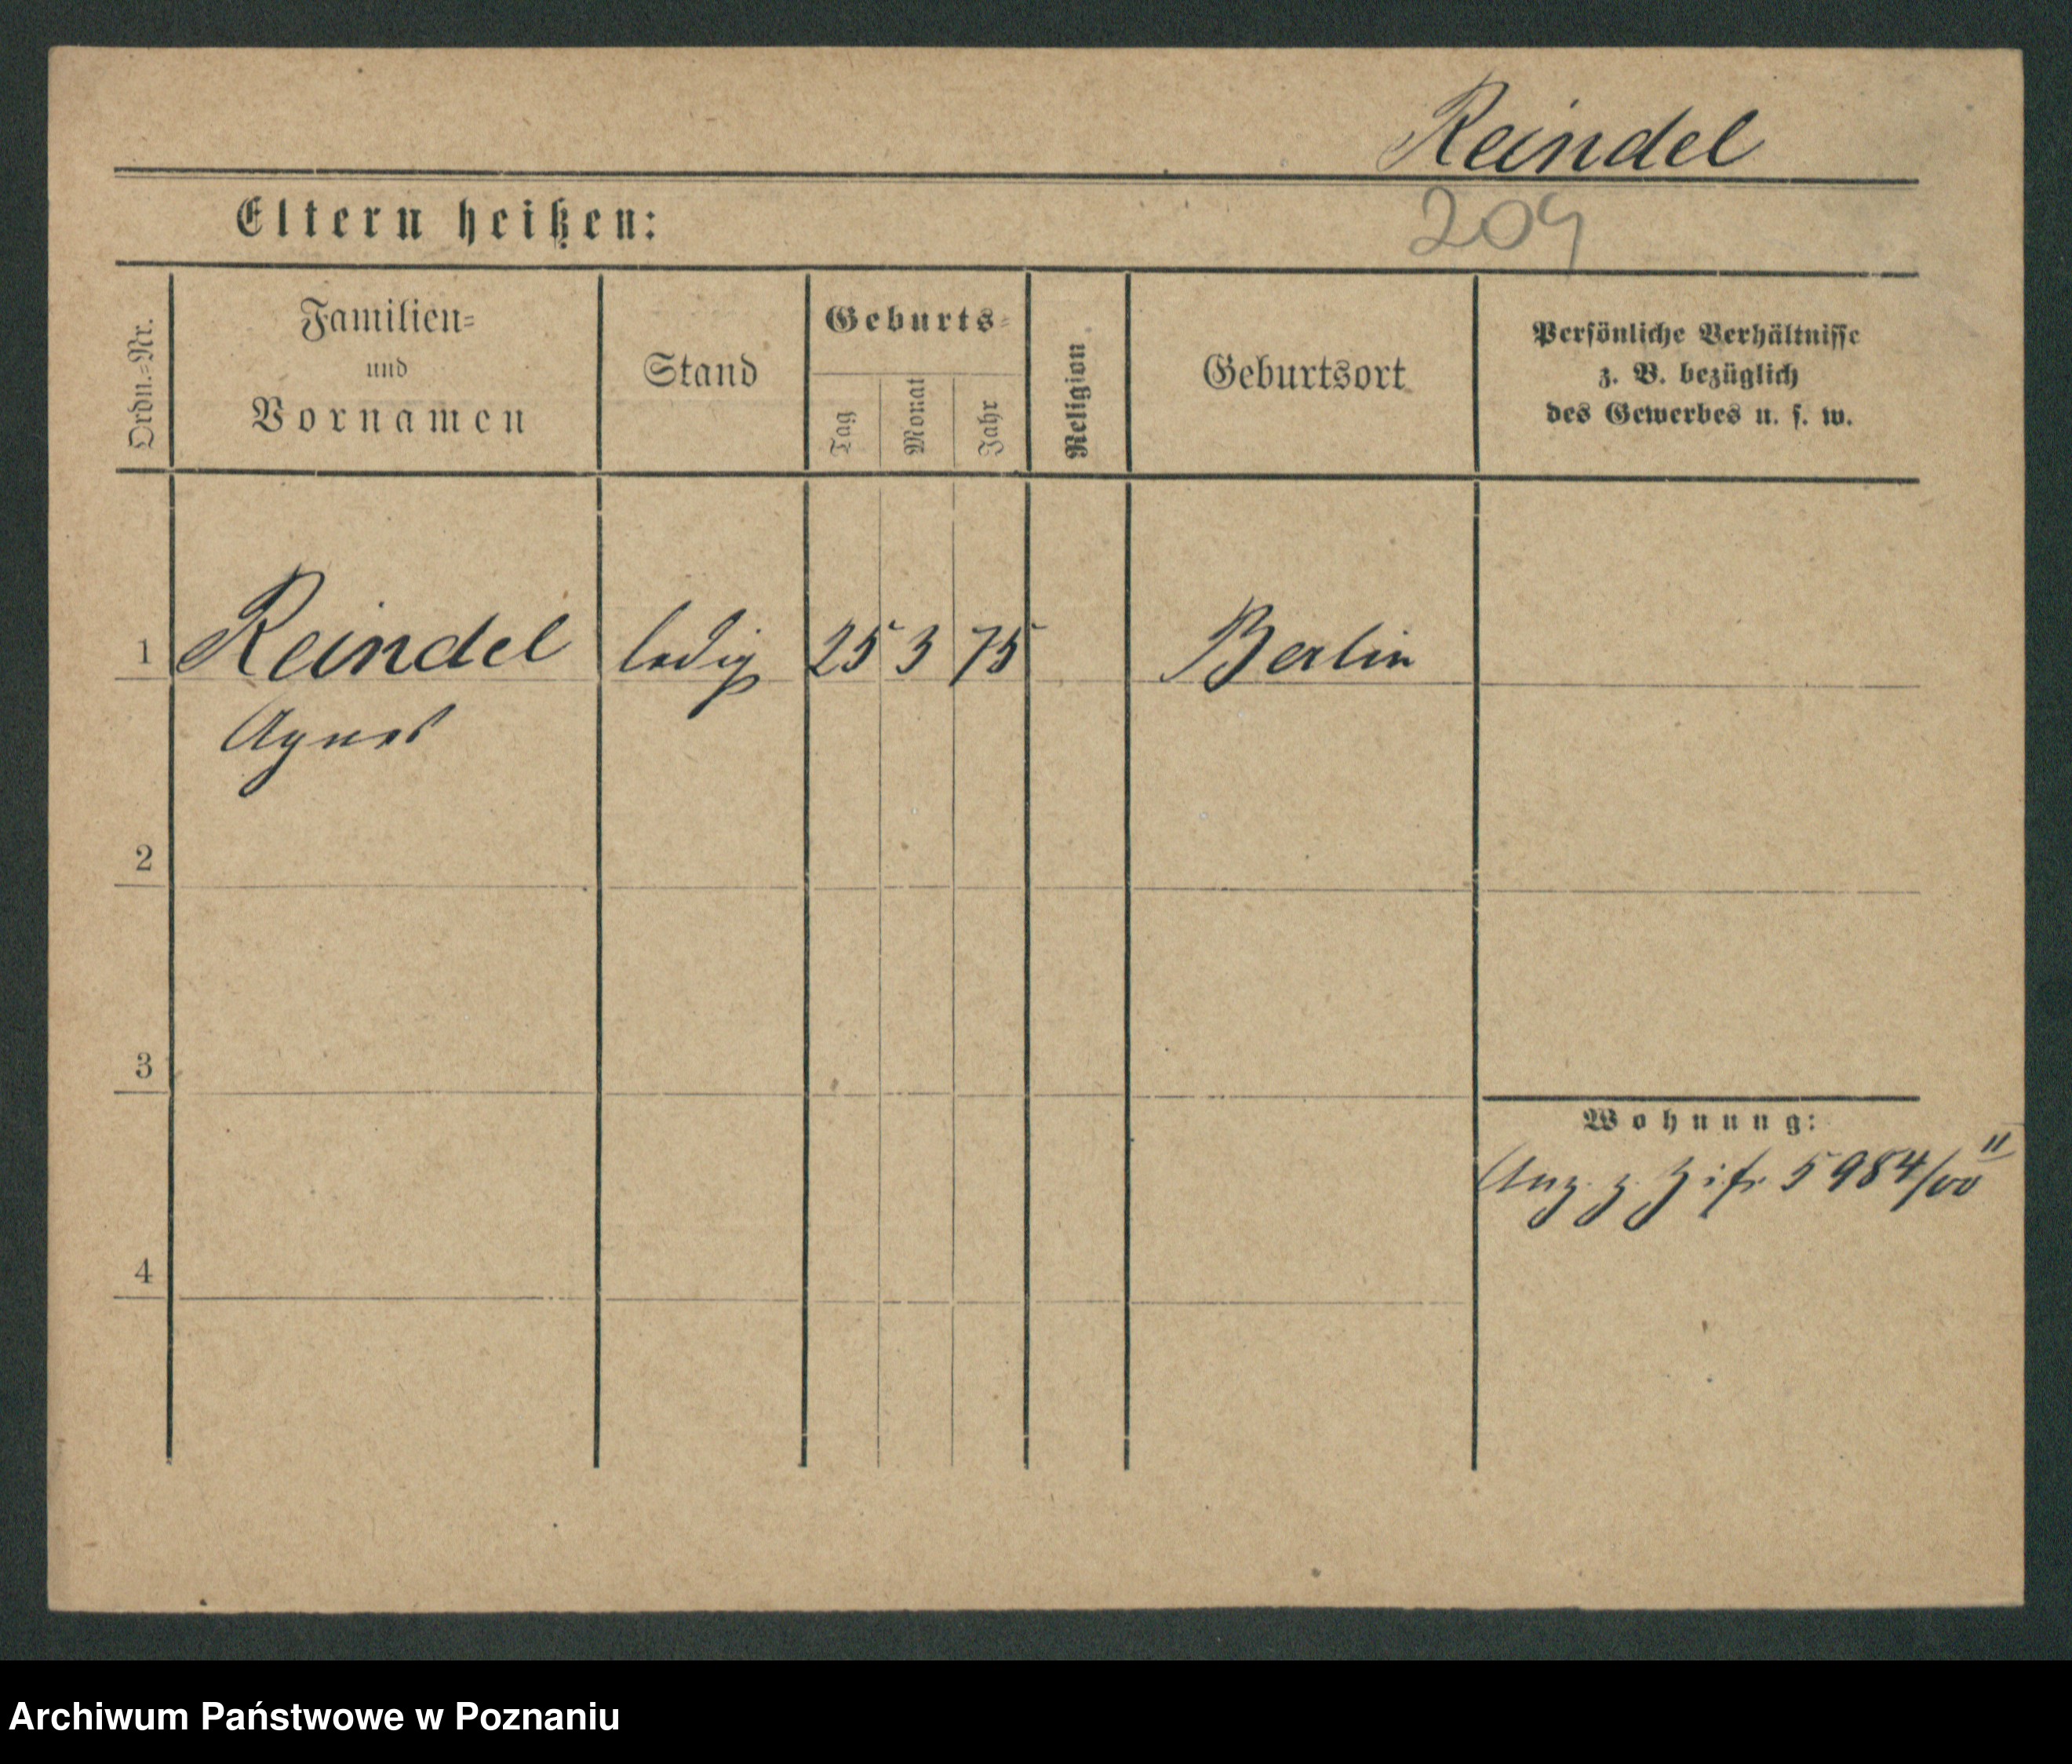 Reindel
209
Eltern heißen:
Ordn.=Nr.
Familien=
und
Vornamen
Stand
Geburts=
Tag
Monat
Jahr
Religion
Geburtsort
Persönliche Verhältnisse
z. B. bezüglich
des Gewerbes u. s. w.
1 Reindel ledig 25 3 75 Berlin
Agnes
2
3
Wohnung:
Anz. z. Ziff. 5984/00 II
4
Archiwum Państwowe w Poznaniu